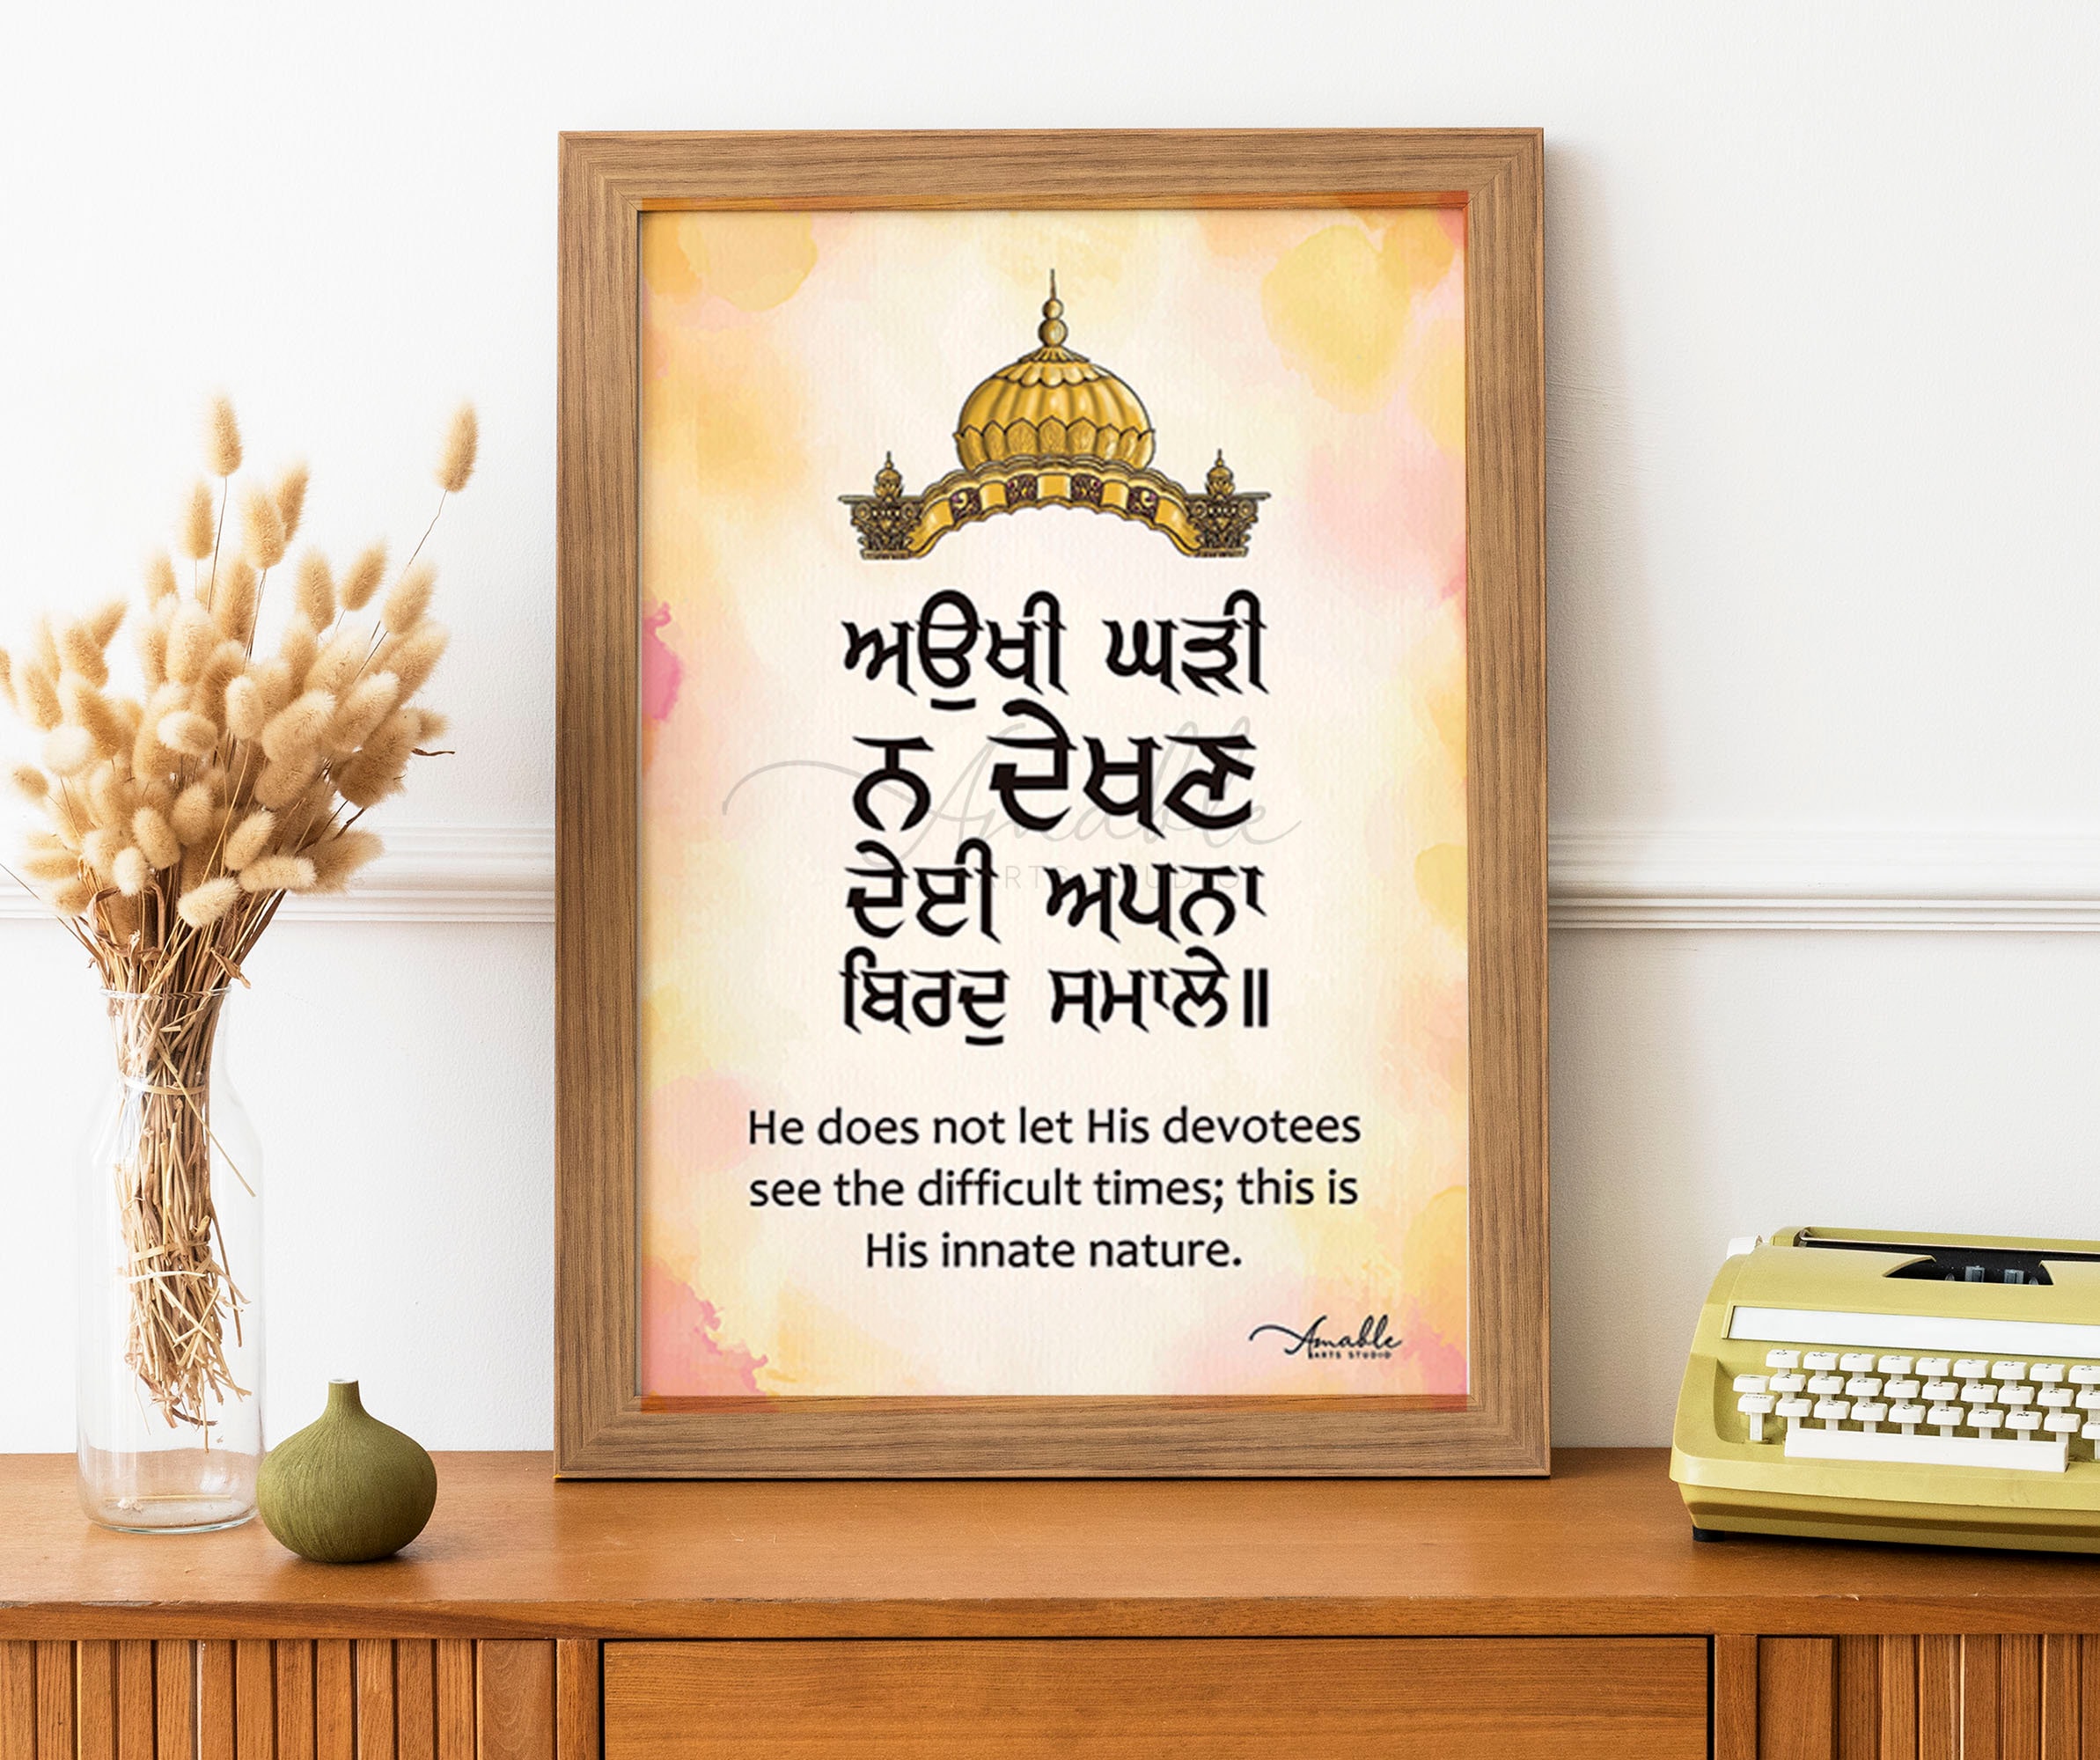 ਅਉਖੀ ਘੜੀ
ਨ ਦੇਖਣ
ਦੇਈ ਅਪਨਾ
ਬਿਰਦੁ ਸਮਾਲੇ॥
Amable
ARTS STUDIO
He does not let His devotees
see the difficult times; this is
His innate nature.
Amable
ARTS STUDIO